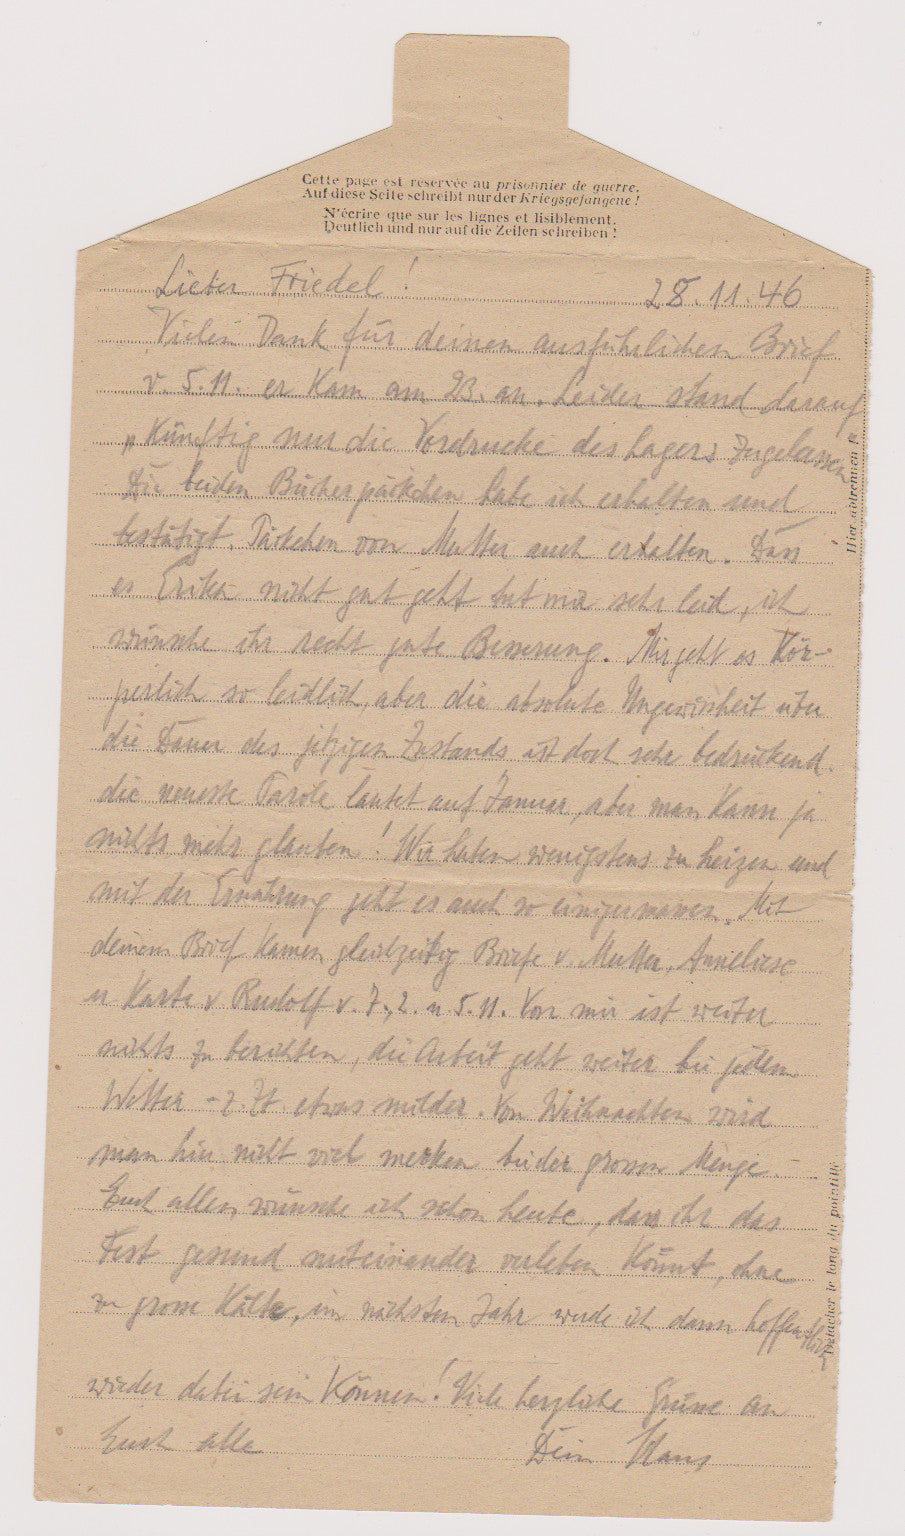 Cette page est réservée au prisonnier de guerre.
Auf diese Seite schreibt nur der Kriegsgefangene!
N'écrire que sur les lignes et lisiblement.
Deutlich und nur auf die Zeilen schreiben!
Lieber Friedel! 28.11.46
Vielen Dank für deinen ausführlichen Brief
v. 5.11. er kam am 23. an. Leider stand darauf
„Künftig nur die Vordrucke des Lagers zugelassen"
Die beiden Bücherpäckchen habe ich erhalten und
bestätigt. Päckchen von Mutter auch erhalten. Dass
es Erika nicht gut geht tut mir sehr leid, ich
wünsche ihr recht gute Besserung. Mir geht es kör-
perlich so leidlich, aber die absolute Ungewissheit über
die Dauer des jetzigen Zustands ist doch sehr bedrückend.
die neueste Parole lautet auf Januar, aber man kann ja
nichts mehr glauben! Wir haben wenigstens zu heizen und
mit der Ernährung geht es auch so einigermassen. Mit
deinem Brief kamen gleichzeitig Briefe v. Mutter, Anneliese
u Karte v Rudolf v. 7., 2. u 5.11. Von mir ist weiter
nichts zu berichten, die Arbeit geht weiter bei jedem
Wetter - z. Zt. etwas milder. Von Weihnachten wird
man hier nicht viel merken bei der grossen Menge.
Euch allen wünsche ich schon heute, dass ihr das
Fest gesund miteinander verleben könnt, ohne
zu grosse Kälte, im nächsten Jahr werde ich dann hoffentlich
wieder dabei sein können! Viele herzliche Grüsse an
Euch alle Dein Hans
Hier abtrennen
Détacher le long du pointillé